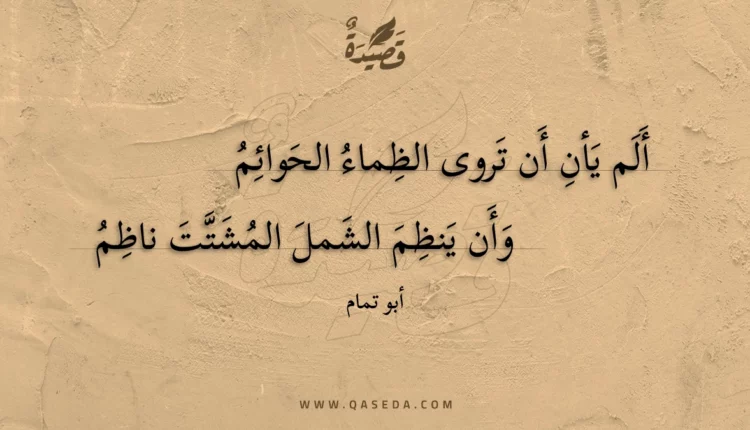 قَصِيدَةٌ
أَلَم يَأنِ أَن تَروى الظِماءُ الحَوائِمُ
وَأَن يَنظِمَ الشَملَ المُشَتَّتَ ناظِمُ
أبو تمام
WWW.QASEDA.COM